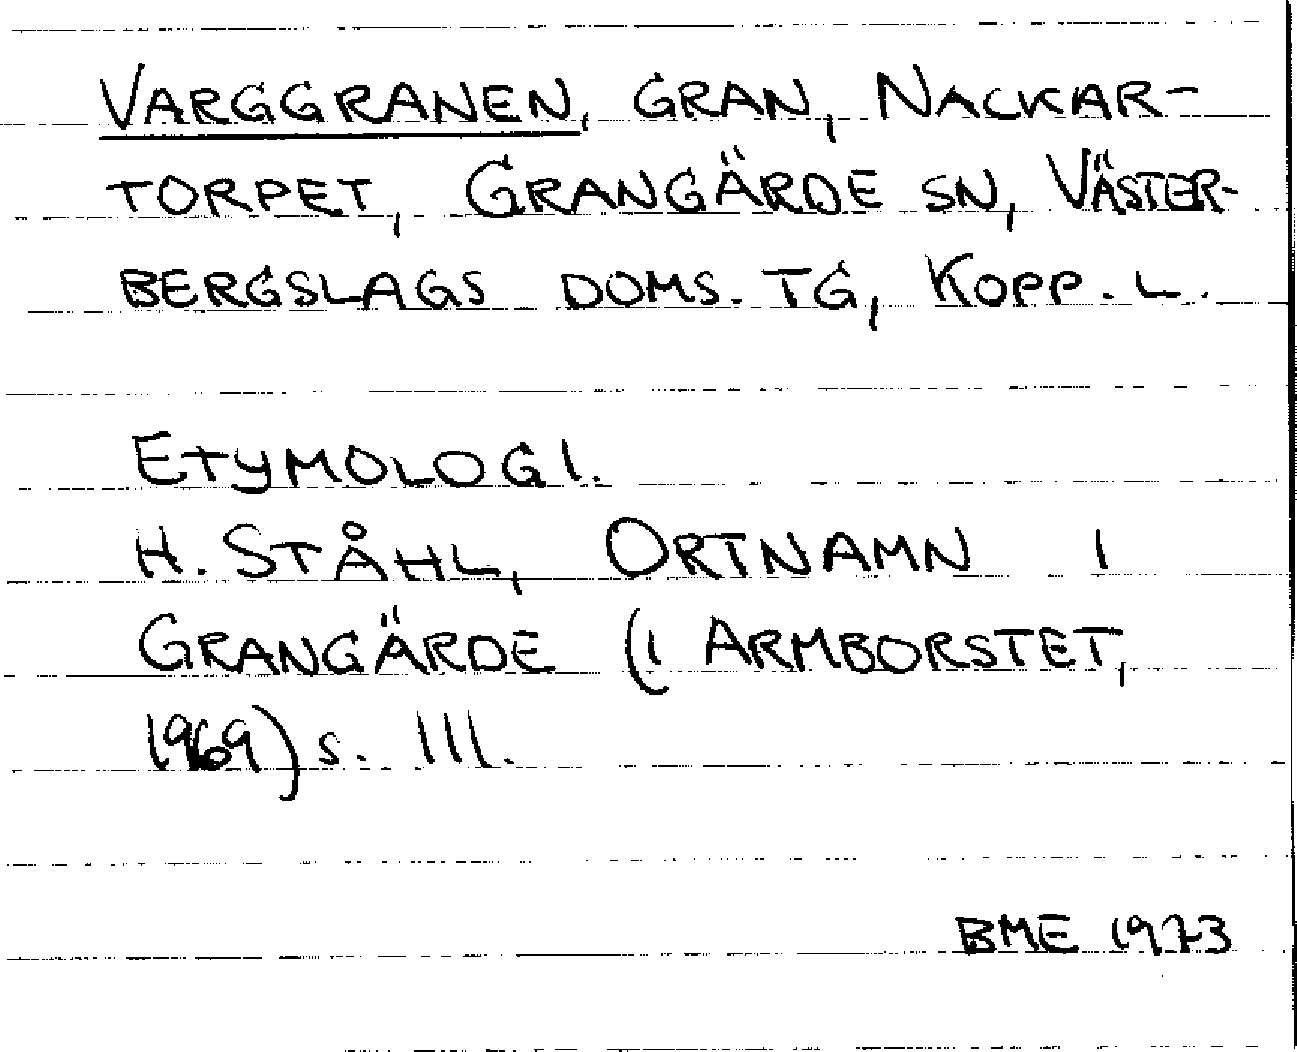 VARGGRANEN, GRAN, NACKAR-
TORPET, GRANGÄRDE SN, VÄSTER-
BERGSLAGS DOMS. TG, KOPP. L.
ETYMOLOGI.
H. STÅHL, ORTNAMN I
GRANGÄRDE (I ARMBORSTET,
1969) S. 111.
BME 1973